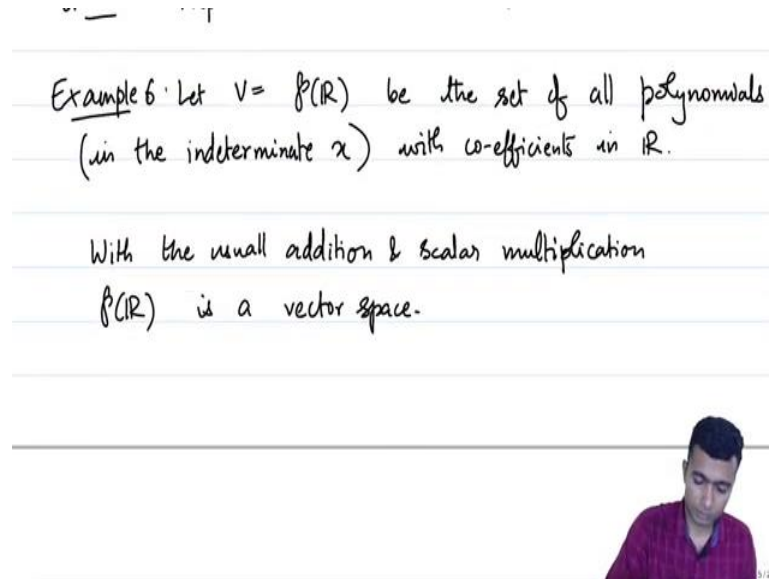 Example 6. Let V = P(ℝ) be the set of all polynomials
(in the indeterminate x) with co-efficients in ℝ.
With the usuall addition & scalar multiplication
P(ℝ) is a vector space.